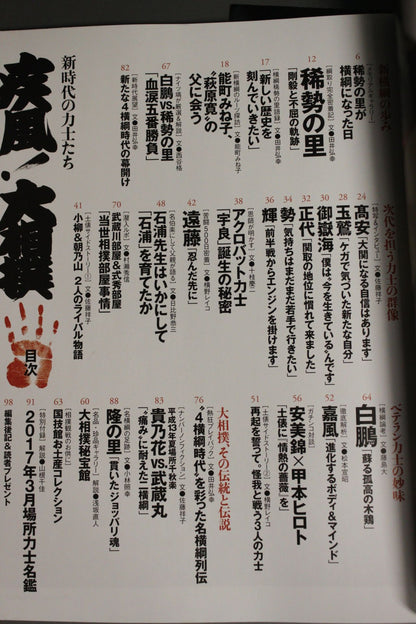 疾風!大相撲
目次
新時代の力士たち
新横綱の歩み
6
稀勢の里が
横綱になった日
12
稀勢の里
「剛毅と不屈の軌跡」
17
「新しい歴史を
刻んでいきたい」
18
能町みね子、
“萩原寛”の
父に会う
67
白鵬vs稀勢の里
「血涙五番勝負」
82
[新時代展望] 文●田井弘幸
新たな4横綱時代の幕開け
次代を担う力士の群像
24
髙安「大関になる自信はあります」
28
玉鷲「ケガで気づいた新たな自分」
30
御嶽海「僕は、今を生きているんです」
32
正代「関取の地位に慣れて来ました」
34
勢「気持ちはまだまだ若手で行きたい」
36
輝「前半戦からエンジンを掛けます」
38
アクロバット力士
「宇良」誕生の秘密
42
[苦闘500日密着] 文●横野レイコ
遠藤「忍んだ先に」
48
石浦先生はいかにして
「石浦」を育てたか
70
武蔵川部屋&式秀部屋
「当世相撲部屋事情」
41
[土俵サイドストーリー①] 文●佐藤祥子
小柳&朝乃山 2人のライバル物語
ベテラン力士の妙味
64
[横綱論考] 文●藤島大
白鵬「蘇る孤高の木鶏」
52
[徹底解析] 文●松本宣昭
嘉風「進化するボディ&マインド」
56
[ガチンコ対談]
安美錦×甲本ヒロト
「土俵に“情熱の薔薇”を」
51
[土俵サイドストーリー②] 文●横野レイコ
再起を誓って。怪我と戦う3人の力士
大相撲、その伝統と伝説
76
“4横綱時代”を彩った名横綱列伝
83
平成13年夏場所千秋楽
貴乃花vs.武蔵丸
「“痛み”に耐えた二横綱」
88
[名横綱の足跡] 文●小林照幸
隆の里「貫いたジョッパリ魂」
60
大相撲秘宝館
63
国技館お土産コレクション
91
2017年3月場所力士名鑑
98
編集後記&読者プレゼント